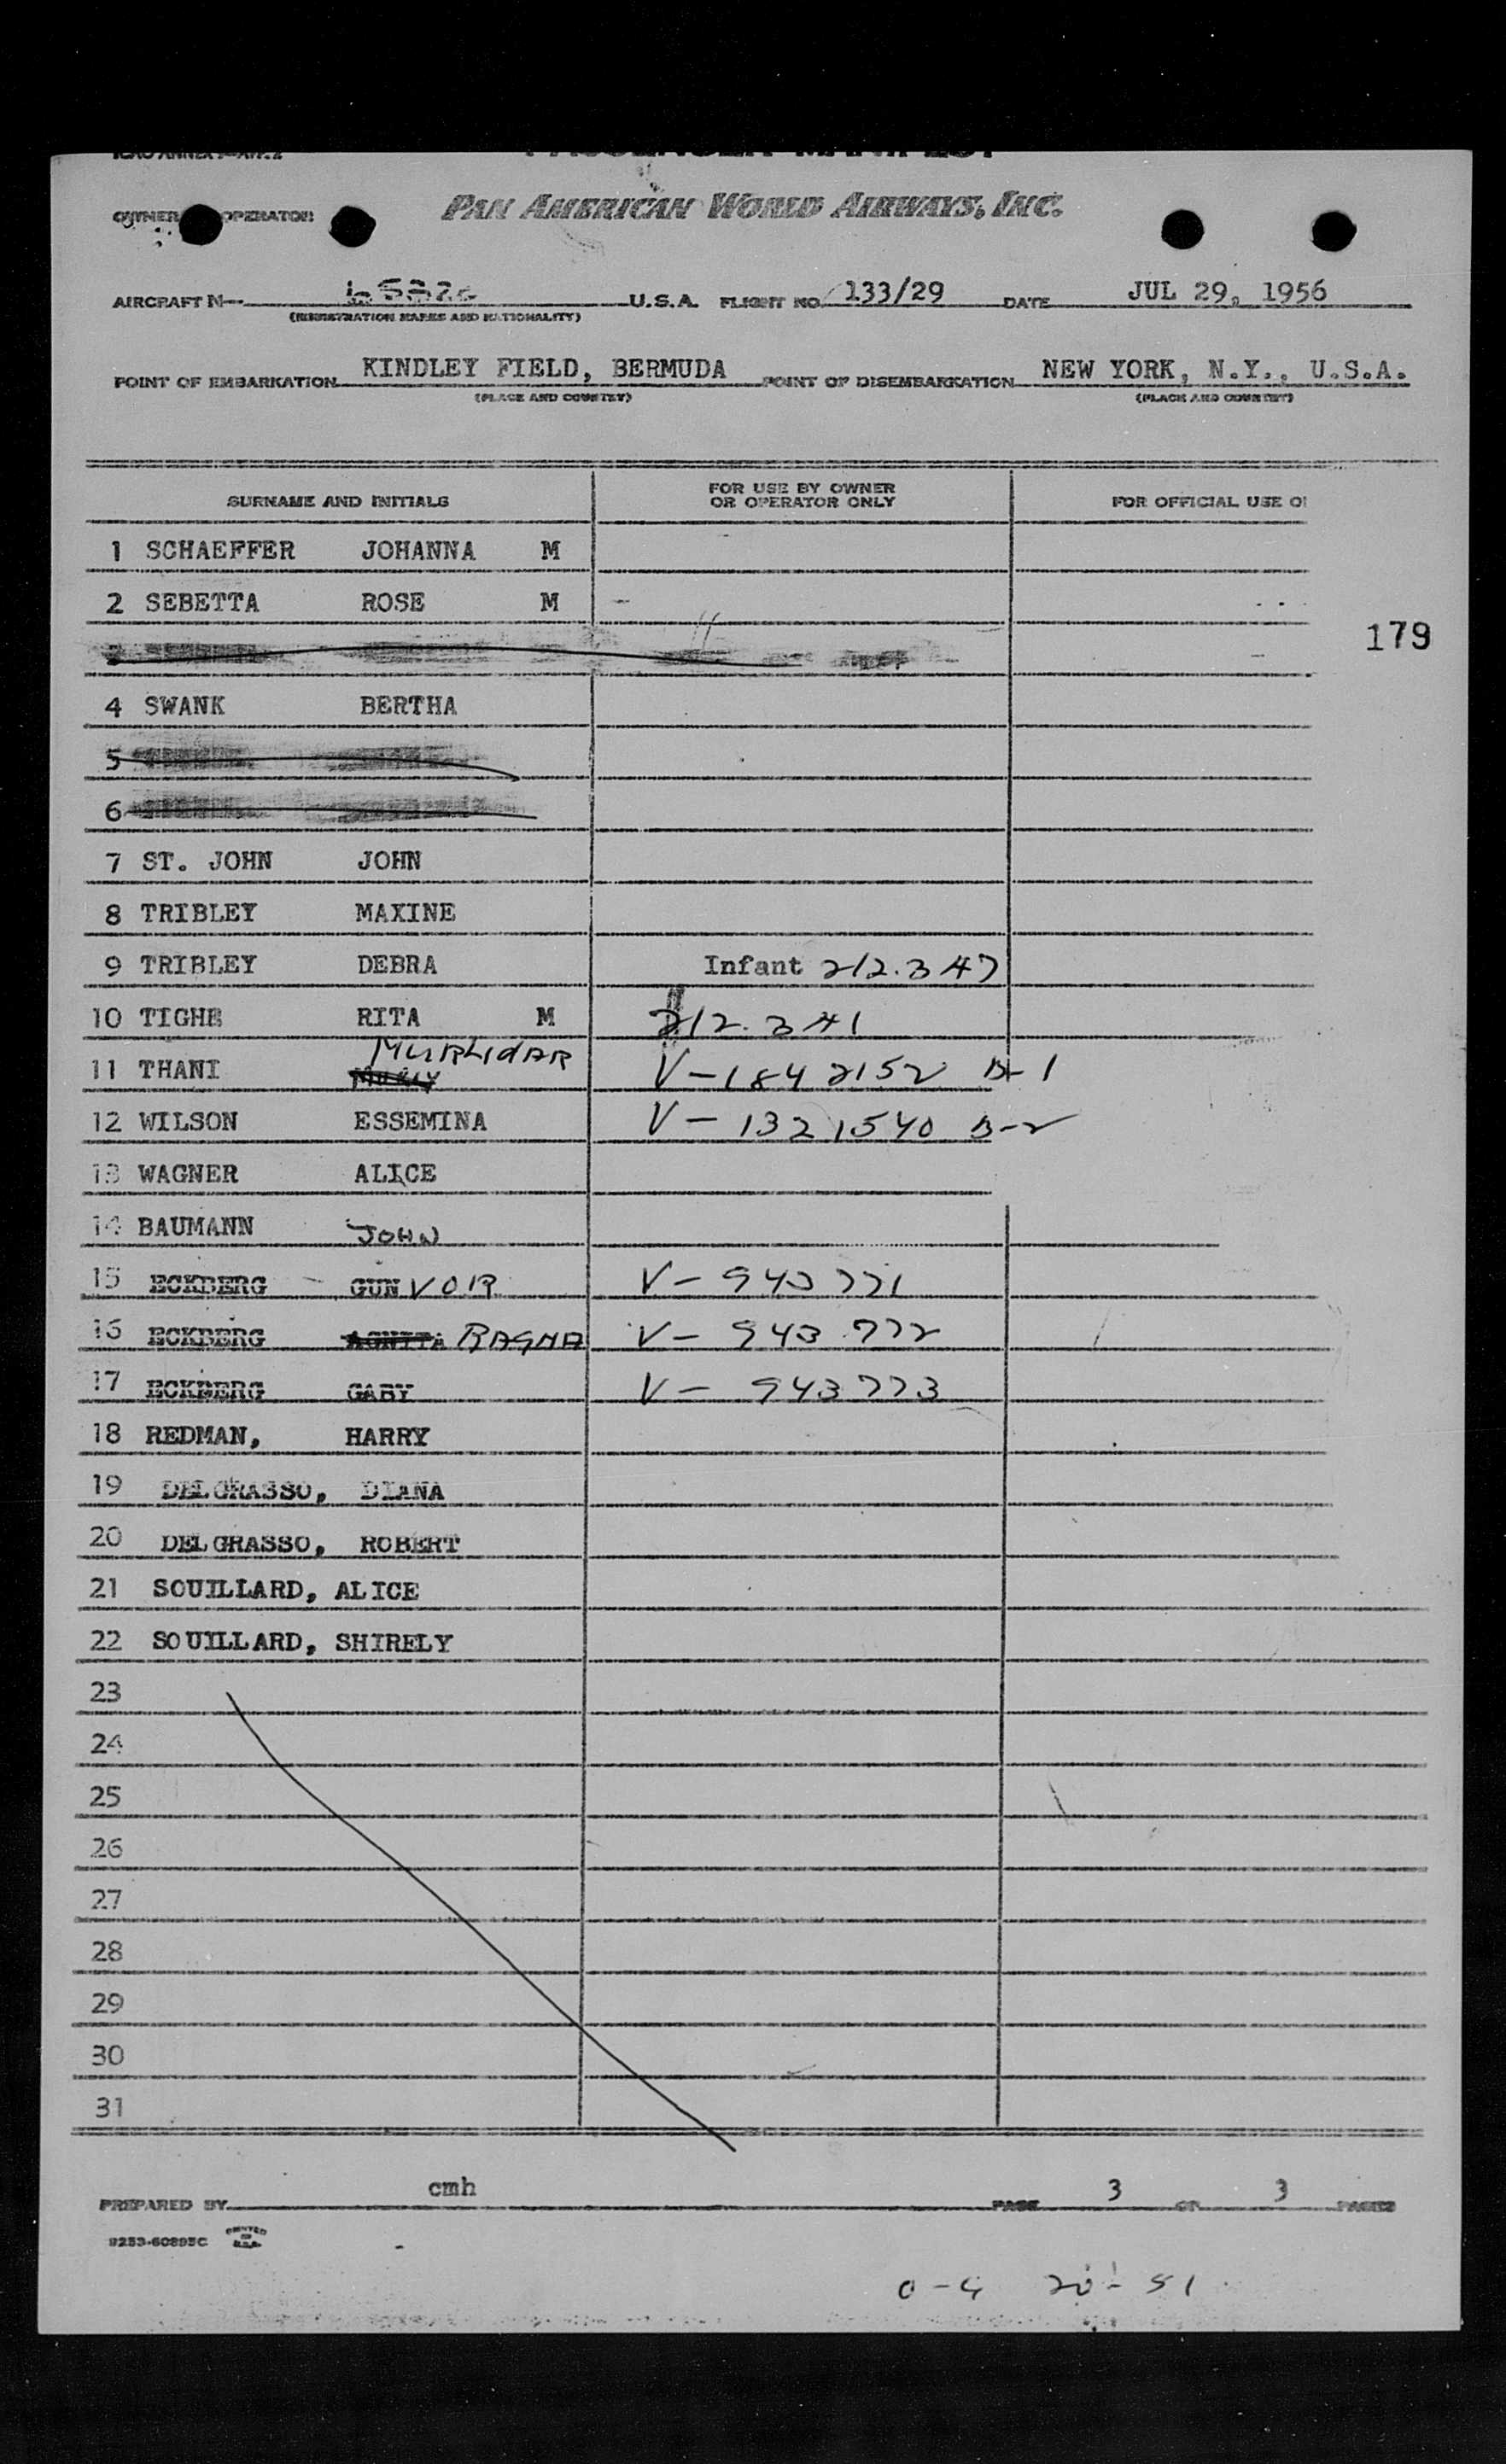 ICAO ANNEX 9-APP. 2
PASSENGER MANIFEST
OWNER OPERATOR PAN AMERICAN WORLD AIRWAYS, INC.
AIRCRAFT N— U.S.A. FLIGHT NO. 133/29 DATE JUL 29, 1956
(REGISTRATION MARKS AND NATIONALITY)
POINT OF EMBARKATION KINDLEY FIELD, BERMUDA POINT OF DISEMBARKATION NEW YORK, N.Y., U.S.A.
(PLACE AND COUNTRY) (PLACE AND COUNTRY)
SURNAME AND INITIALS FOR USE BY OWNER OR OPERATOR ONLY FOR OFFICIAL USE O
1 SCHAEFFER JOHANNA M
2 SEBETTA ROSE M
179
3
4 SWANK BERTHA
5
6
7 ST. JOHN JOHN
8 TRIBLEY MAXINE
9 TRIBLEY DEBRA Infant 212.347
10 TIGHE RITA M 212.341
11 THANI MURLIDAR V-1842152 B-1
12 WILSON ESSEMINA V-1321540 B-2
13 WAGNER ALICE
14 BAUMANN JOHN
15 ECKBERG GUNVOR V-943771
16 ECKBERG RAGNA V-943772
17 ECKBERG GABY V-943773
18 REDMAN, HARRY
19 DELGRASSO, DIANA
20 DELGRASSO, ROBERT
21 SOUILLARD, ALICE
22 SOUILLARD, SHIRELY
23
24
25
26
27
28
29
30
31
PREPARED BY cmh PAGE 3 OF 3 PAGES
9253-60895C PRINTED IN U.S.A.